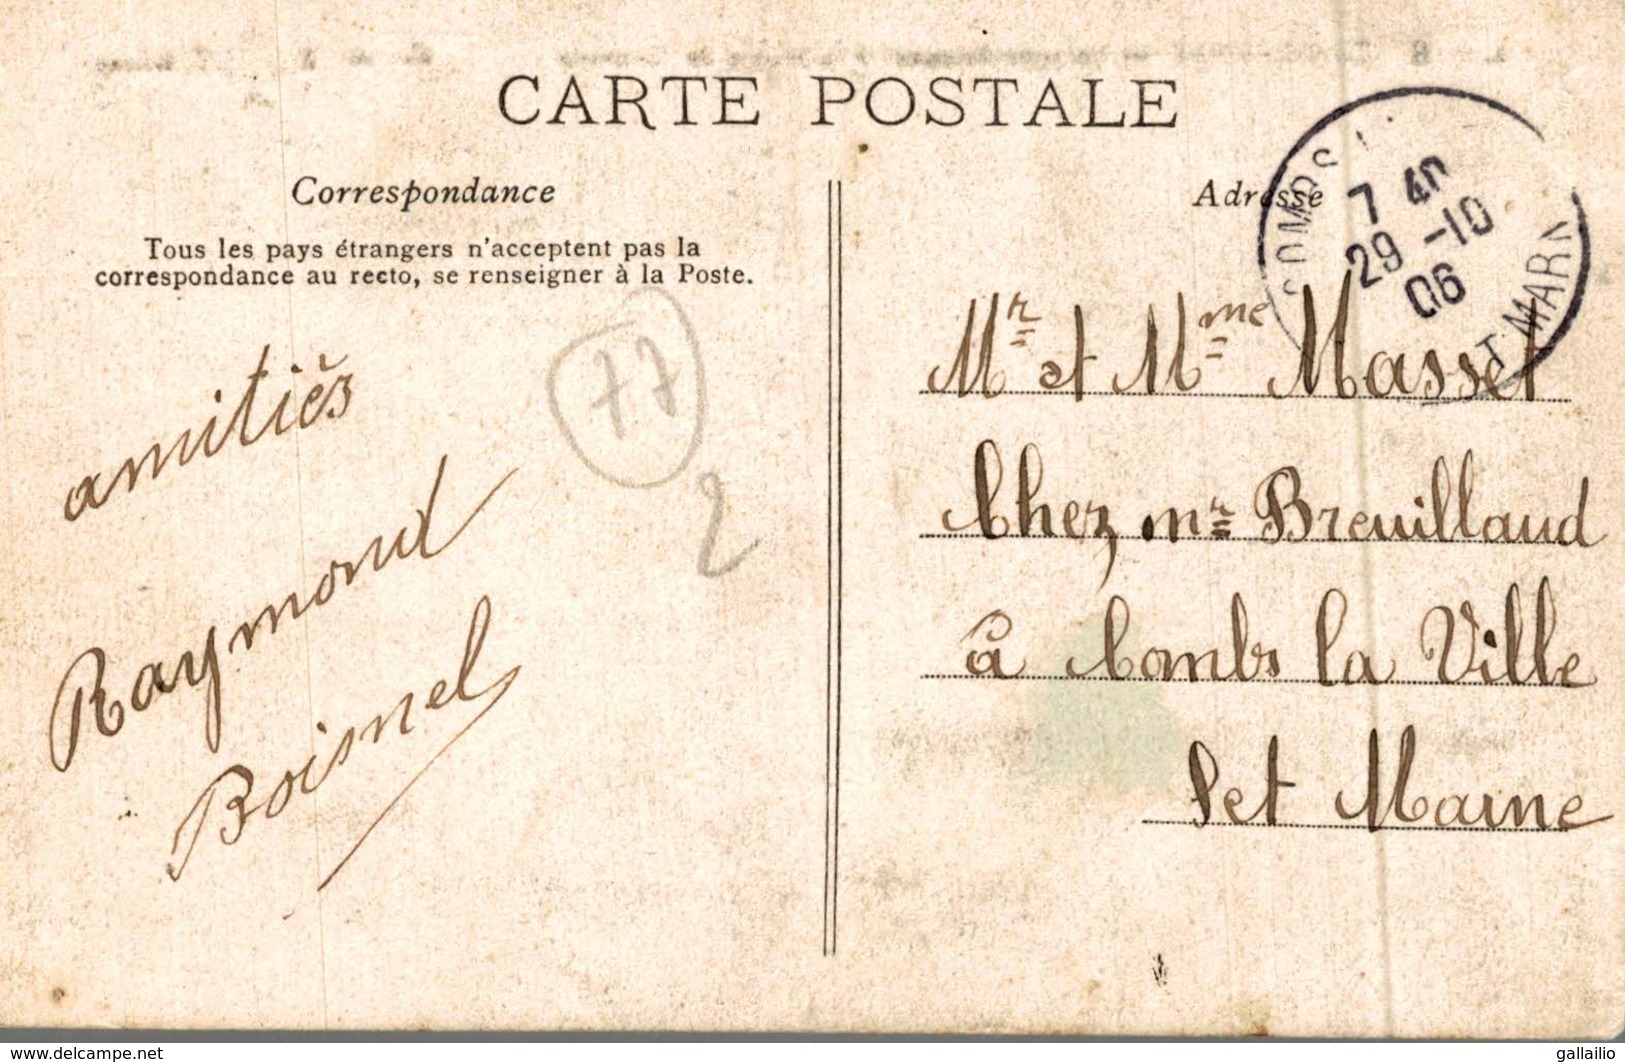 CARTE POSTALE
Correspondance
Tous les pays étrangers n'acceptent pas la
correspondance au recto, se renseigner à la Poste.
amitiès
Raymond
Boisnel
77
2
Adresse
COMBS
7 40
29 -10
06
T MARN
Mr et Mme Masset
Chez mr Breuillaud
à Combs la Ville
Set Marne
www.delcampe.net
gallailio